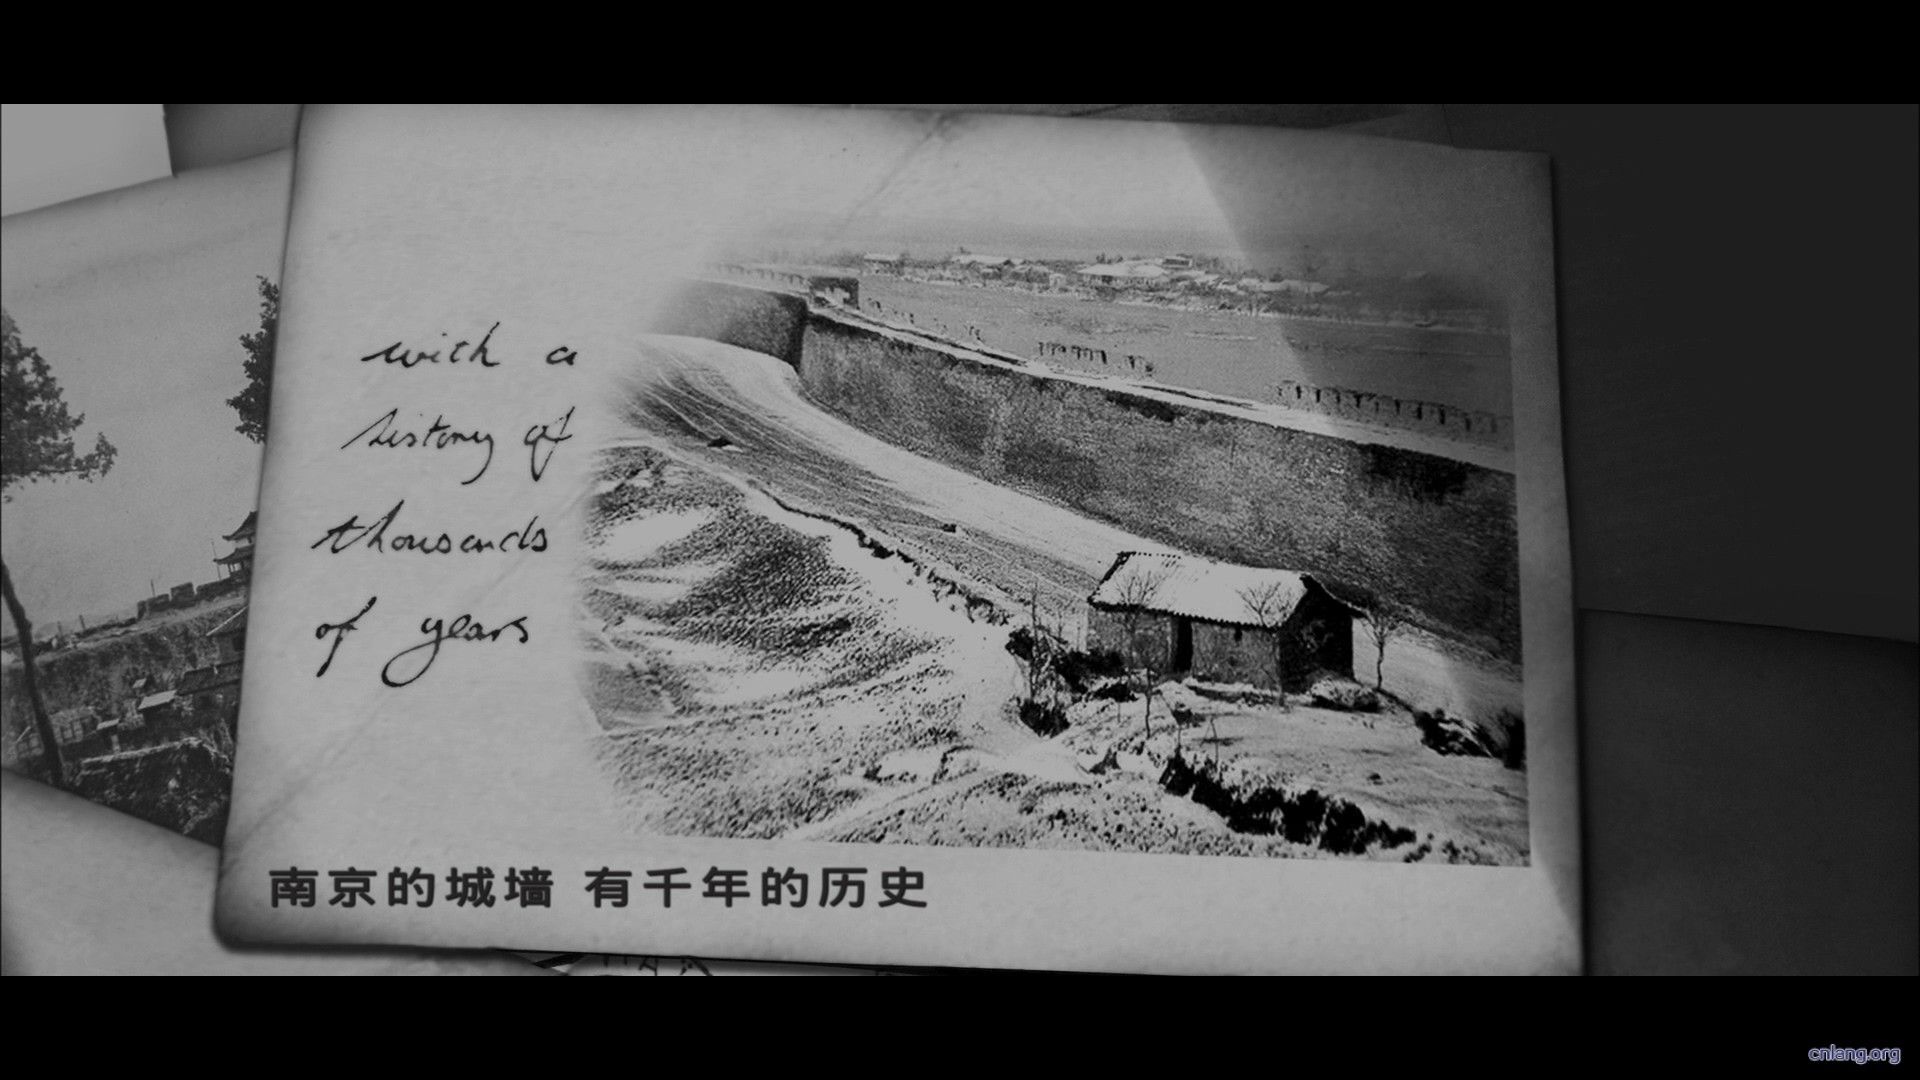 with a
history of
thousands
of years
南京的城墙 有千年的历史
cnlang.org